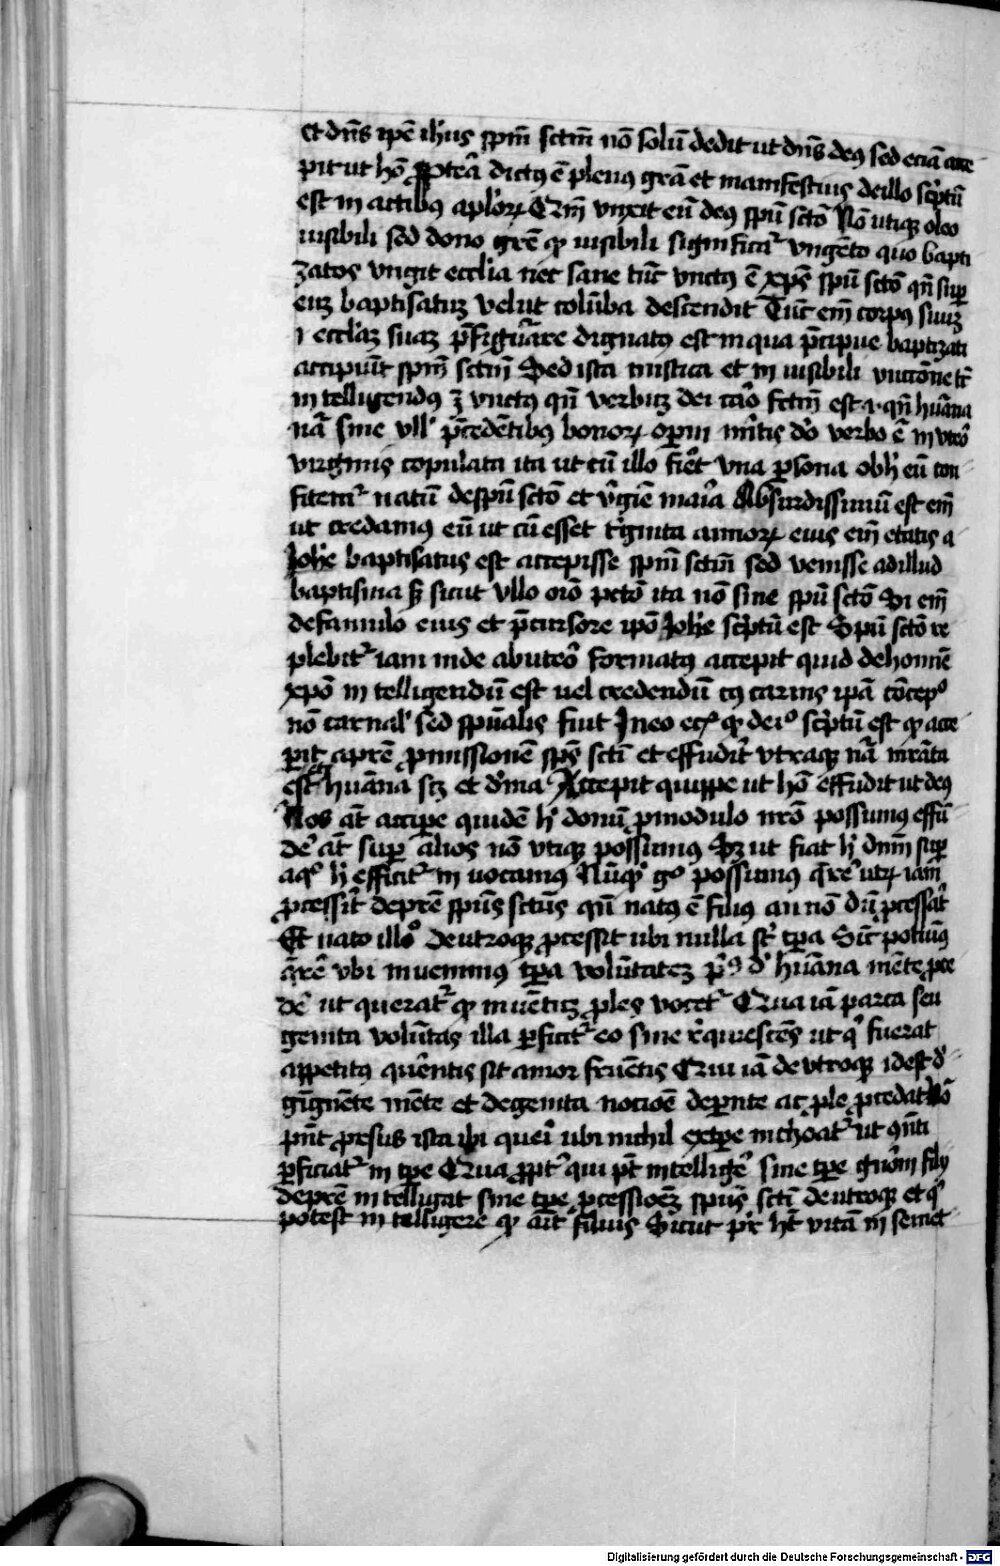 et dn̄s ip̄e ih̄us sp̄m sctm̄ nō solū dedit ut dn̄s deꝰ sed eciā acce
pit ut hō ꝓpt̄ea dictꝰ ē plenꝰ grā et manifestius de illo sc̄ptū
est in actibꝰ aplōꝝ Qm̄ vnxit eū deꝰ spū sctō Nō utiqꝫ oleo
visibili sed dono grē qꝫ visibili significat̄ vngēto quo bapti
zatos vngit ecclia nec sane tūc vnctꝰ ē xp̄s spū sctō qn̄ suꝑ
eūz baptisatuz velut colūba descendit Tūc em̄ corpꝰ suuz
i eccl̄iaz suaz p̄figurare dignatꝰ est in qua p̄cipue baptizati
accipiūt sp̄m sctm̄ Sed ista mistica et in uisibili vnctōne
in telligendꝰ ē vnctꝰ qn̄ verbuz dei caro fctm̄ est .i. qn̄ hūana
nā sine vll' p̄cedētibꝰ bonoꝝ opm̄ m̄itis dō verbo ē in vtō
virginis copulata ita ut cū illo fiēt vna ꝑsona ob h' eū con
fitem̄ natū de spū sctō et v̄gīe maria Absurdissimū est em̄
ut credamꝰ eū ut cū esset t̄ginta annoꝝ eius em̄ etatis a
Joh̄e baptisatus est accepisse sp̄m sctm̄ sed venisse ad illud
baptisma sicut vllo oīo pctō ita nō sine spū sctō Si em̄
de famulo eius et p̄cursore ip̄o Joh̄e sc̄ptū est Spū sctō re
plebit̄ iam inde ab utero formatꝰ accepit quid de homīe
xp̄o in telligendū est uel credendū cꝰ carnis ip̄a cōcepᵒ
nō carnal' sed spūalis fuit In eo qꝫ de iᵒ sc̄ptū est qꝫ acce
ꝑit a prē ꝓmissionē sp̄s sctī et effudit utraqꝫ nā mr̄ata
est hūana scz et d'ina Accepit quippe ut hō effudit ut deꝰ
Nos āt accipe quidē h' donū ꝓ modulo nrō possumꝰ effū
de' āt suꝑ alios nō utiqꝫ possumꝰ Sz ut fiat h' dnm̄ suꝑ
h' efficit̄ in uocamꝰ Nūqd gᵒ possumꝰ q̄re' utꝝ iam
ꝓcessit de prē spūs sctūs qn̄ natꝰ ē filiꝰ an nō dū ꝓcessat
Et nato illo de utroqꝫ ꝓcessit ubi nulla st̄ tꝑa Sic potuiꝰ
q̄rē vbi inuenimꝰ tꝑa volūtatez pⁱꝰ d' hūana mēte ꝓce
dē ut querat̄ qꝫ inuētuz ꝓles vocet̄ Qua iā parta seu
genita volūtas illa ꝑficit̄ eo fine requiescēs ut qⁱ fuerat
appetitꝰ querētis sit amor fruētis Qui iā de vtroqꝫ id est d'
gignēte mēte et de genita nocioē de parente ac ꝓle ꝓcedat Nō
pn̄t ꝓsus ista ibi queri ubi nichil ex tꝑe inchoat̄ ut qn̄ti
ꝑficiat̄ in tꝑe Qua ꝓpt̄ qui pt̄ intellige' sine tꝑe filij
de prē in telligat sine tꝑe ꝓcessioēz sp̄us sctī de utroqꝫ et qⁱ
potest in telligere qꝫ ait filius Sicut pr̄ ht̄ vitā in semet